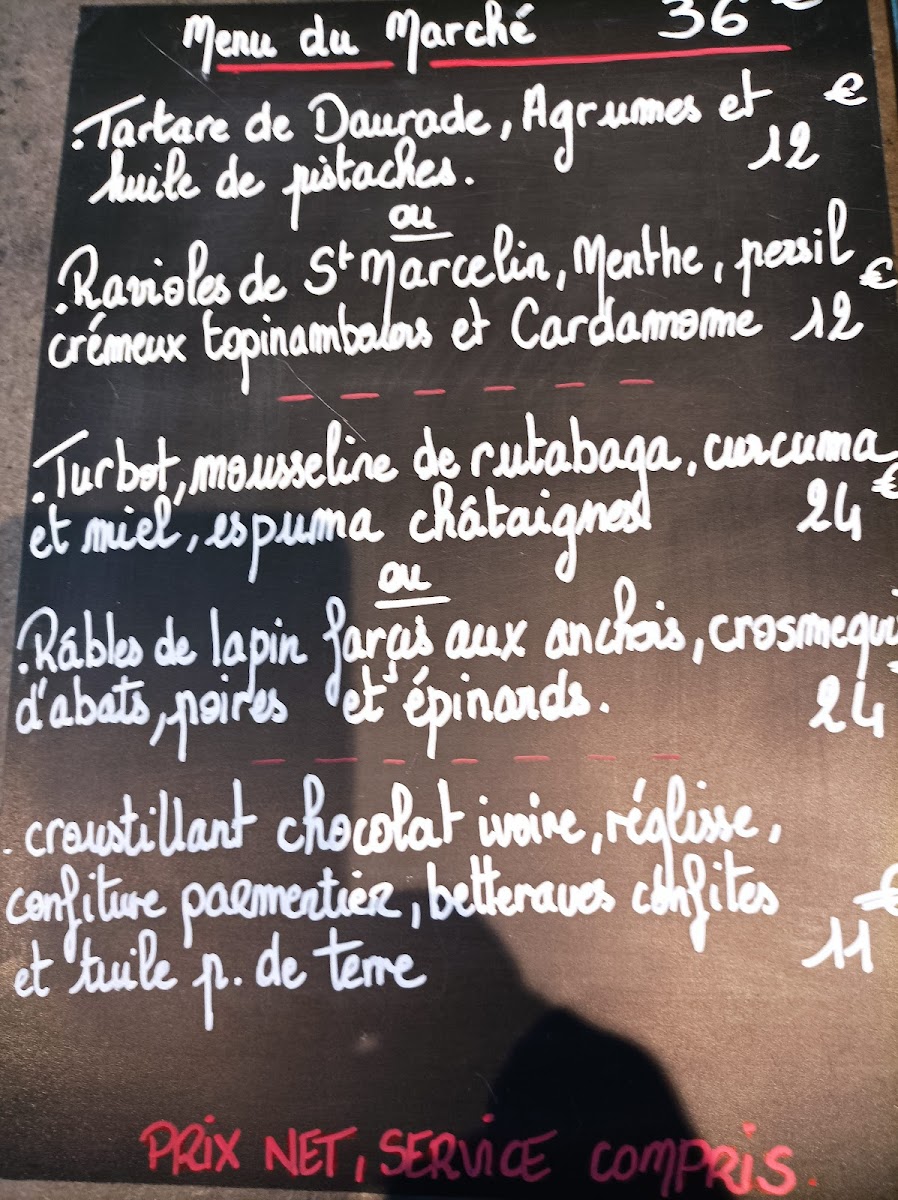 Menu du Marché 36 €
.Tartare de Daurade, Agrumes et €
huile de pistaches. 12
ou
.Ravioles de St Marcelin, Menthe, persil €
crémeux topinambours et Cardamome 12
.Turbot, mousseline de rutabaga, curcuma €
et miel, espuma châtaignes 24
ou
.Râbles de lapin farçis aux anchois, crosmequi
d'abats, poires et épinards. 24
.croustillant chocolat ivoire, réglisse,
confiture parmentier, betteraves confites €
et tuile p. de terre 11
PRIX NET, SERVICE COMPRIS.